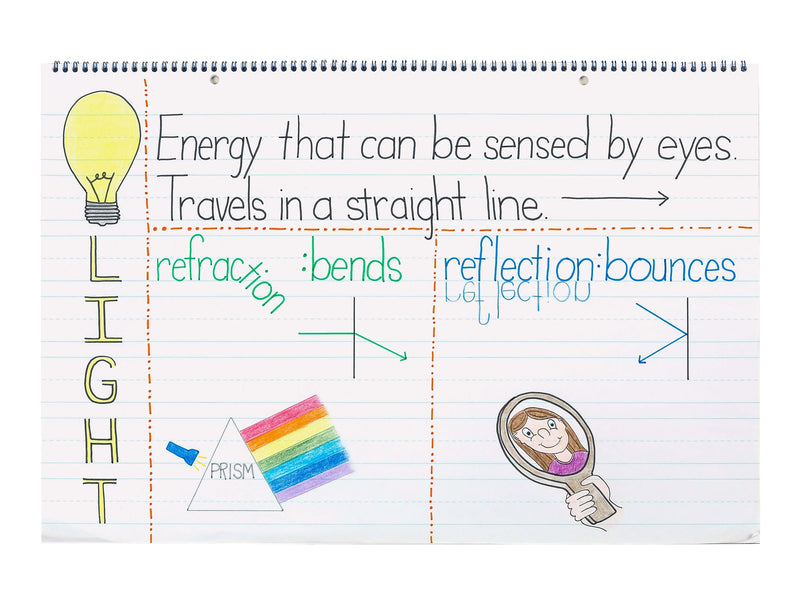 Energy that can be sensed by eyes.
Travels in a straight line.
LIGHT
refraction :bends
reflection:bounces
reflection
PRISM